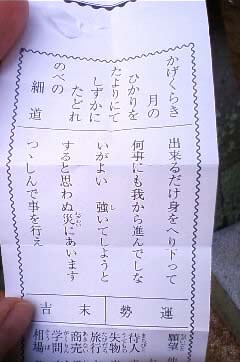 かげくらき
月の
ひかりを
たよりにて
しずかに
たどれ
のべの
細道
出来るだけ身をへり下って
何事にも我から進んでしな
いがよい　強いてしようと
すると思わぬ災にあいます
つゝしんで事を行え
運
勢
末
吉
願望
待人
失物
旅行
商売
学問
相場